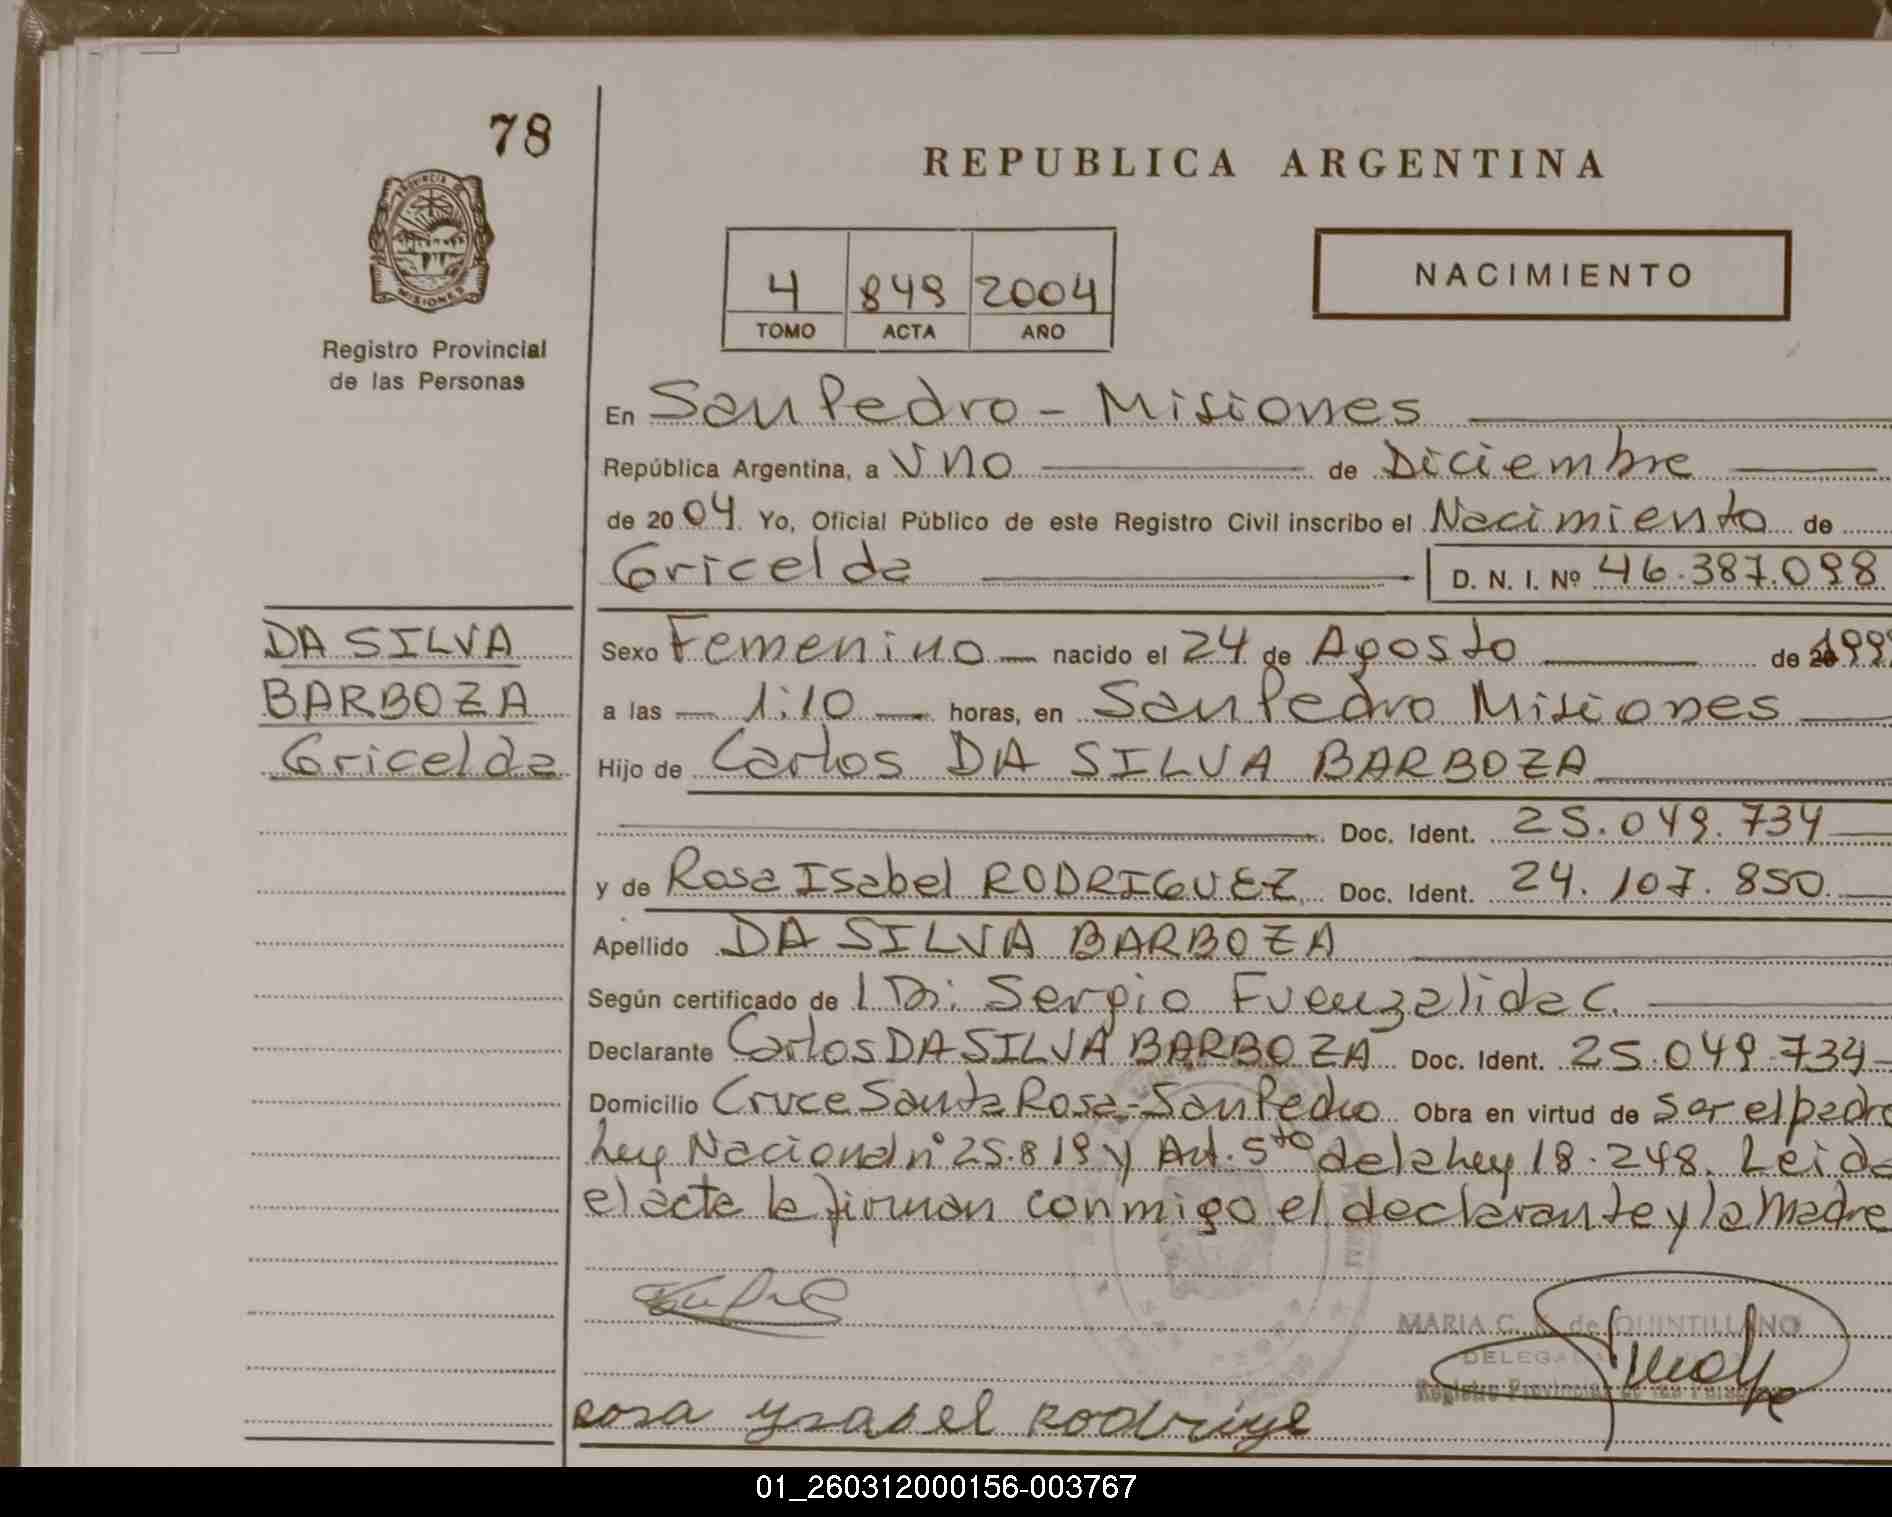 78
PROVINCIA DE
MISIONES
Registro Provincial
de las Personas
REPUBLICA ARGENTINA
4 849 2004
TOMO ACTA AÑO
NACIMIENTO
En San Pedro - Misiones
República Argentina, a Uno de Diciembre
de 2004. Yo, Oficial Público de este Registro Civil inscribo el Nacimiento de
Gricelda D. N. I. Nº 46.387.098
DA SILVA
BARBOZA
Gricelda
Sexo Femenino nacido el 24 de Agosto de 199
a las 1:10 horas, en San Pedro Misiones
Hijo de Carlos DA SILVA BARBOZA
Doc. Ident. 25.049.734
y de Rosa Isabel RODRIGUEZ Doc. Ident. 24.107.850
Apellido DA SILVA BARBOZA
Según certificado de Dr. Sergio Fuenzalida C.
Declarante Carlos DA SILVA BARBOZA Doc. Ident. 25.049.734
Domicilio Cruce Santa Rosa - San Pedro Obra en virtud de ser el padre
Ley Nacional nº 25.819 y Art. 5to de la Ley 18.248. Leida
el acta la firman conmigo el declarante y la madre
MARIA C. de QUINTILLANO
DELEGADA
Registro Provincial de las Personas
rosa ysabel rodrige
01_260312000156-003767